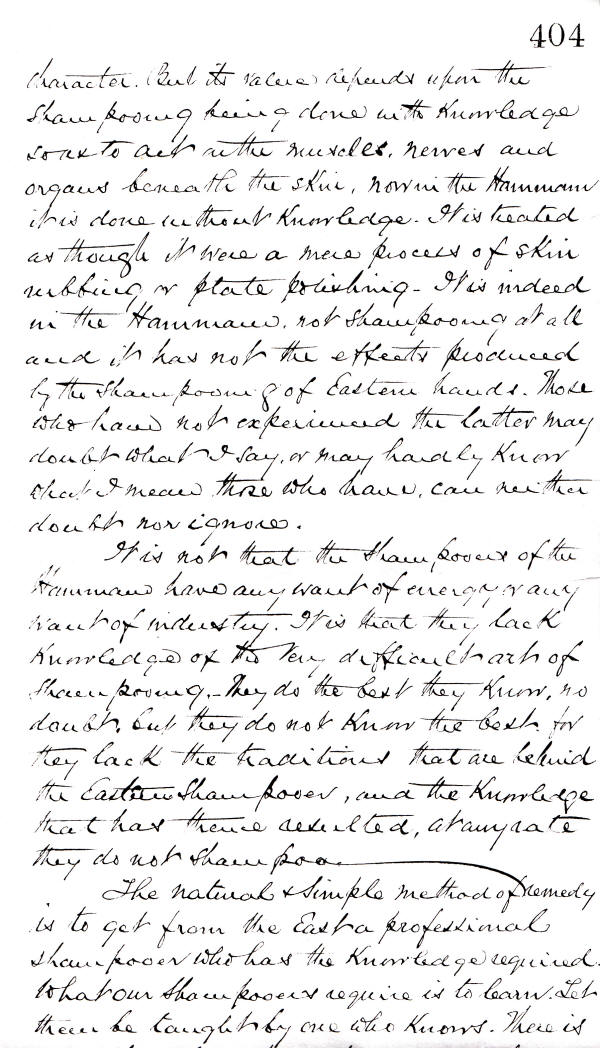 404
character. But its value depends upon the
Shampooing being done with Knowledge
so as to act on the muscles, nerves and
organs beneath the skin, now in the Hammam
it is done without Knowledge. It is treated
as though it were a mere process of skin
rubbing or plate polishing - It is indeed
in the Hammam, not shampooing at all
and it has not the effects produced
by the Shampooing of Eastern hands. Those
who have not experienced the latter may
doubt what I say, or may hardly Know
what I mean, those who have, can neither
doubt nor ignore.
It is not that the Shampooers of the
Hammam have any want of energy or any
want of industry. It is that they lack
Knowledge of the very difficult art of
Shampooing. - They do the best they Know, no
doubt, but they do not Know the best for
they lack the traditions that are behind
the Eastern Shampooer, and the Knowledge
that has thence resulted, at any rate
they do not shampoo.
The natural & Simple method of remedy
is to get from the East a professional
shampooer who has the Knowledge required.
What our Shampooers require is to learn. Let
them be taught by one who Knows. There is